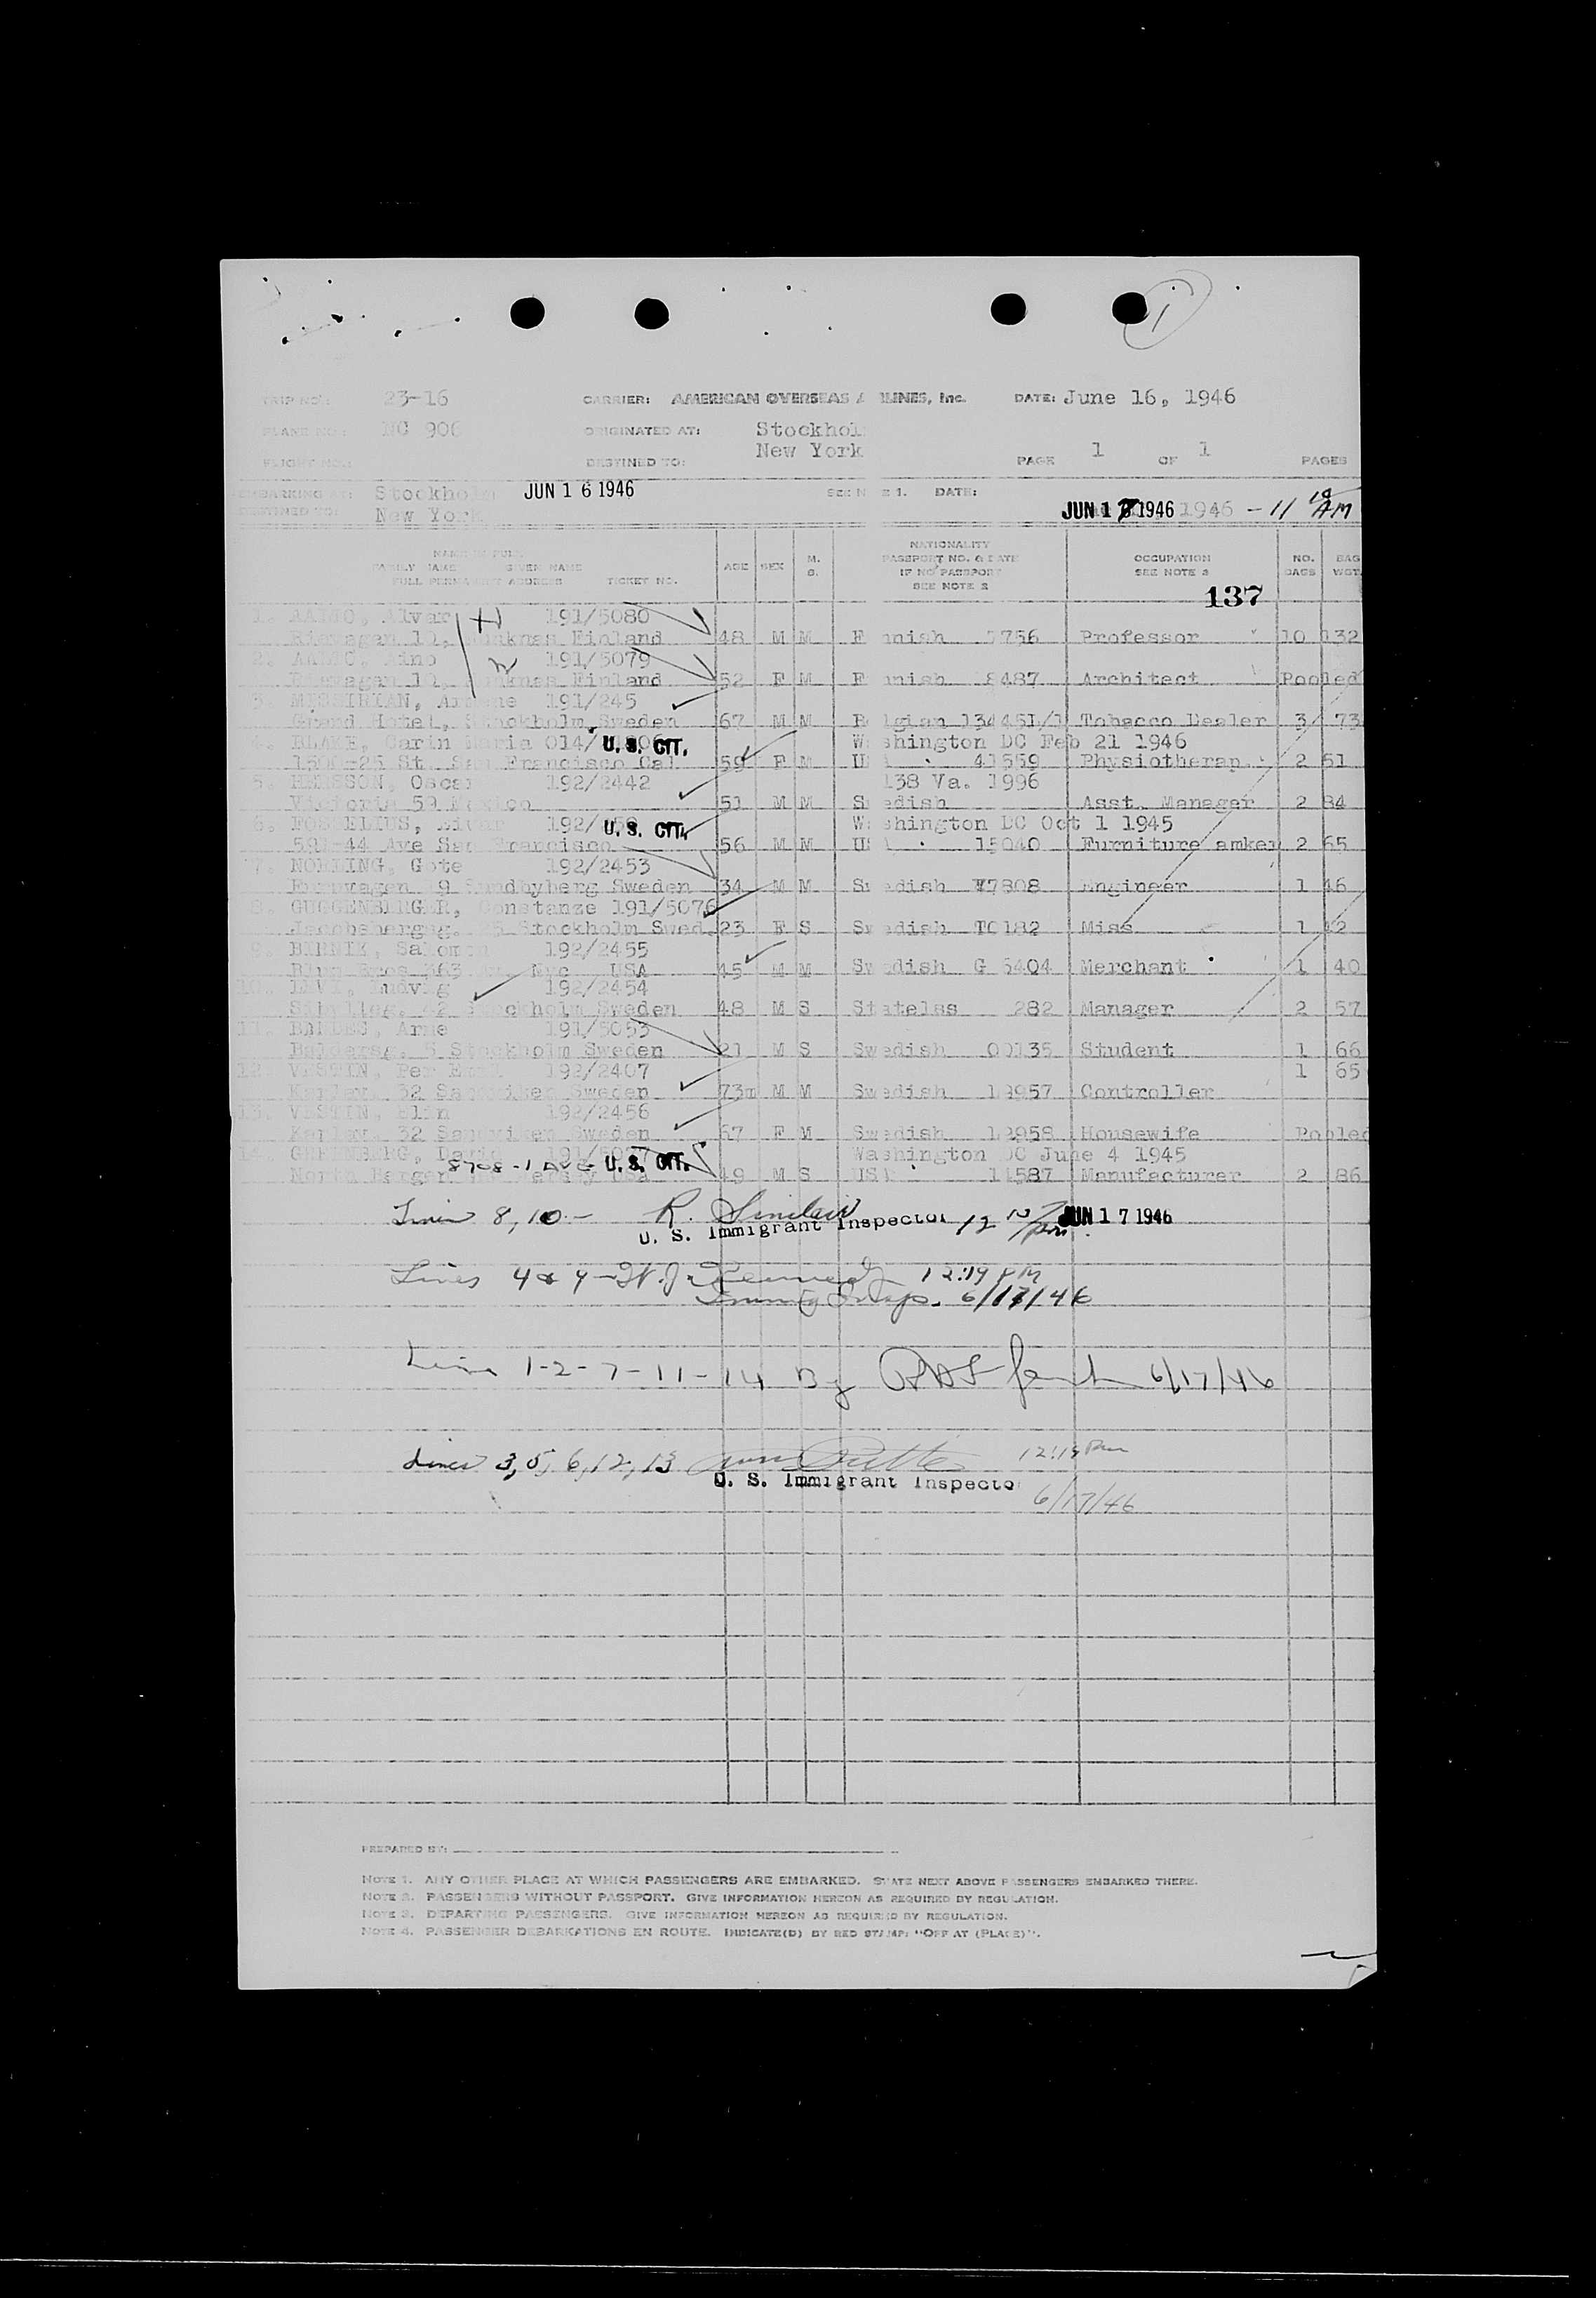 1
TRIP NO.: 23-16 CARRIER: AMERICAN OVERSEAS AIRLINES, Inc. DATE: June 16, 1946
PLANE NO.: NC 906 ORIGINATED AT: Stockhol
FLIGHT NO.: DESTINED TO: New York PAGE 1 OF 1 PAGES
EMBARKING AT: Stockholm JUN 16 1946 SEE NOTE 1. DATE:
DESTINED TO: New York JUN 1 1946 1946 - 11 AM
NAME IN FULL
FAMILY NAME GIVEN NAME
FULL PERMANENT ADDRESS TICKET NO.
AGE SEX M. S.
NATIONALITY
PASSPORT NO. & DATE
IF NO PASSPORT
SEE NOTE 2
OCCUPATION
SEE NOTE 3
NO. BAGS BAG WGT.
137
1. AALTO, Alvar 191/5080
Riemagen 10, Munknas Finland 48 M M Finnish 7756 Professor 10 132
2. AALTO, Aino 191/5079
Riemagen 10, Munknas Finland 52 F M Finnish 8487 Architect Pooled
3. MISSIRIAN, 191/245
Grand Hotel, Stockholm Sweden 67 M M Belgian 134451/1 Tobacco Dealer 3 73
4. BLAKE, Carin Maria 014/ U. S. CIT. Washington DC Feb 21 1946
1500-25 St. San Francisco Cal 59 F M USA 41559 Physiotherap. 2 51
5. Oscar 192/2442 138 Va. 1996
Victoria 59 Mexico 51 M M Swedish Asst. Manager 2 84
6. FOSSELIUS, Eivar 192/ U. S. CIT. Washington DC Oct 1 1945
591-44 Ave San Francisco 56 M M USA 15040 Furniture amker 2 65
7. NORLING, Gote 192/2453
9 Sundbyberg Sweden 34 M M Swedish 7808 Engineer 1 46
8. GUGGENBERGER, Constanze 191/5076
Jacobsbergsg. Stockholm Swed. 23 F S Swedish T0182 Miss 1 42
9. BIRNIK, Salomon 192/2455
363 Nyc USA 45 M M Swedish G 5404 Merchant 1 40
10. LEVI, Ludvig 192/2454
Sibylleg. 42 Stockholm Sweden 48 M S Statelss 282 Manager 2 57
11. Arne 191/5053
Baldersg. 5 Stockholm Sweden 21 M S Swedish 00135 Student 1 66
12. VESTIN, Per Emil 192/2407 1 65
32 Sandviken Sweden 73m M M Swedish 12957 Controller
13. VESTIN, Elin 192/2456
32 Sandviken Sweden 67 F M Swedish 12958 Housewife Pooled
14. GREENBERG, David U. S. CIT. Washington DC June 4 1945
8708-1 Ave
North Bergen New Jersey USA 49 M S USA 14587 Manufacturer 2 86
Lines 8, 10 - R. Sinclair
U. S. Immigrant Inspector 12 pm JUN 17 1946
Lines 4 & 9 - W. J. Kennedy 12:19 PM
Immig Insp. 6/17/46
Line 1-2-7-11-14 By 6/17/46
Lines 3, 5, 6, 12, 13 12:19 Pm
U. S. Immigrant Inspecto
6/17/46
PREPARED BY:
NOTE 1. ANY OTHER PLACE AT WHICH PASSENGERS ARE EMBARKED. STATE NEXT ABOVE PASSENGERS EMBARKED THERE.
NOTE 2. PASSENGERS WITHOUT PASSPORT. GIVE INFORMATION HEREON AS REQUIRED BY REGULATION.
NOTE 3. DEPARTING PASSENGERS. GIVE INFORMATION HEREON AS REQUIRED BY REGULATION.
NOTE 4. PASSENGER DEBARKATIONS EN ROUTE. INDICATE(D) BY RED STAMP: "OFF AT (PLACE)".